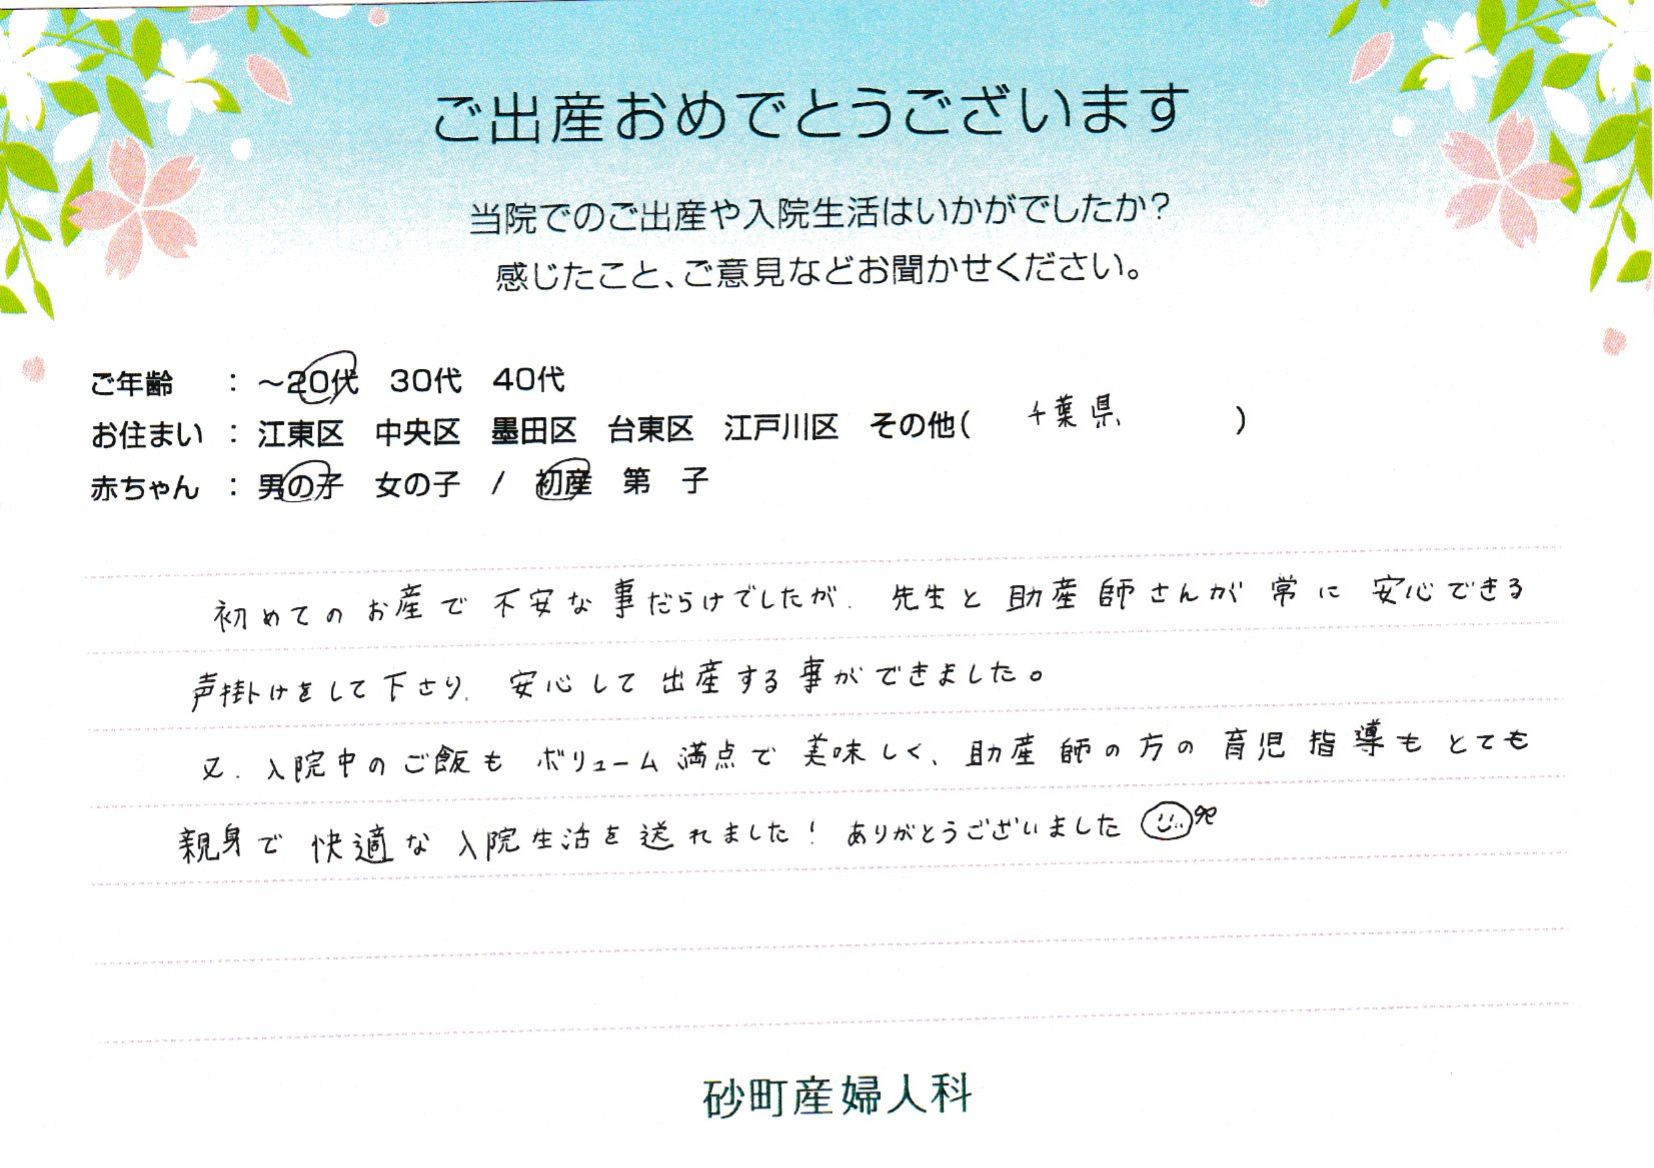 ご出産おめでとうございます
当院でのご出産や入院生活はいかがでしたか?
感じたこと、ご意見などお聞かせください。
ご年齢 : ~20代 30代 40代
お住まい : 江東区 中央区 墨田区 台東区 江戸川区 その他( 千葉県 )
赤ちゃん : 男の子 女の子 / 初産 第 子
初めてのお産で不安な事だらけでしたが、先生と助産師さんが常に安心できる
声掛けをして下さり、安心して出産する事ができました。
又、入院中のご飯もボリューム満点で美味しく、助産師の方の育児指導もとても
親身で快適な入院生活を送れました!ありがとうございました
砂町産婦人科